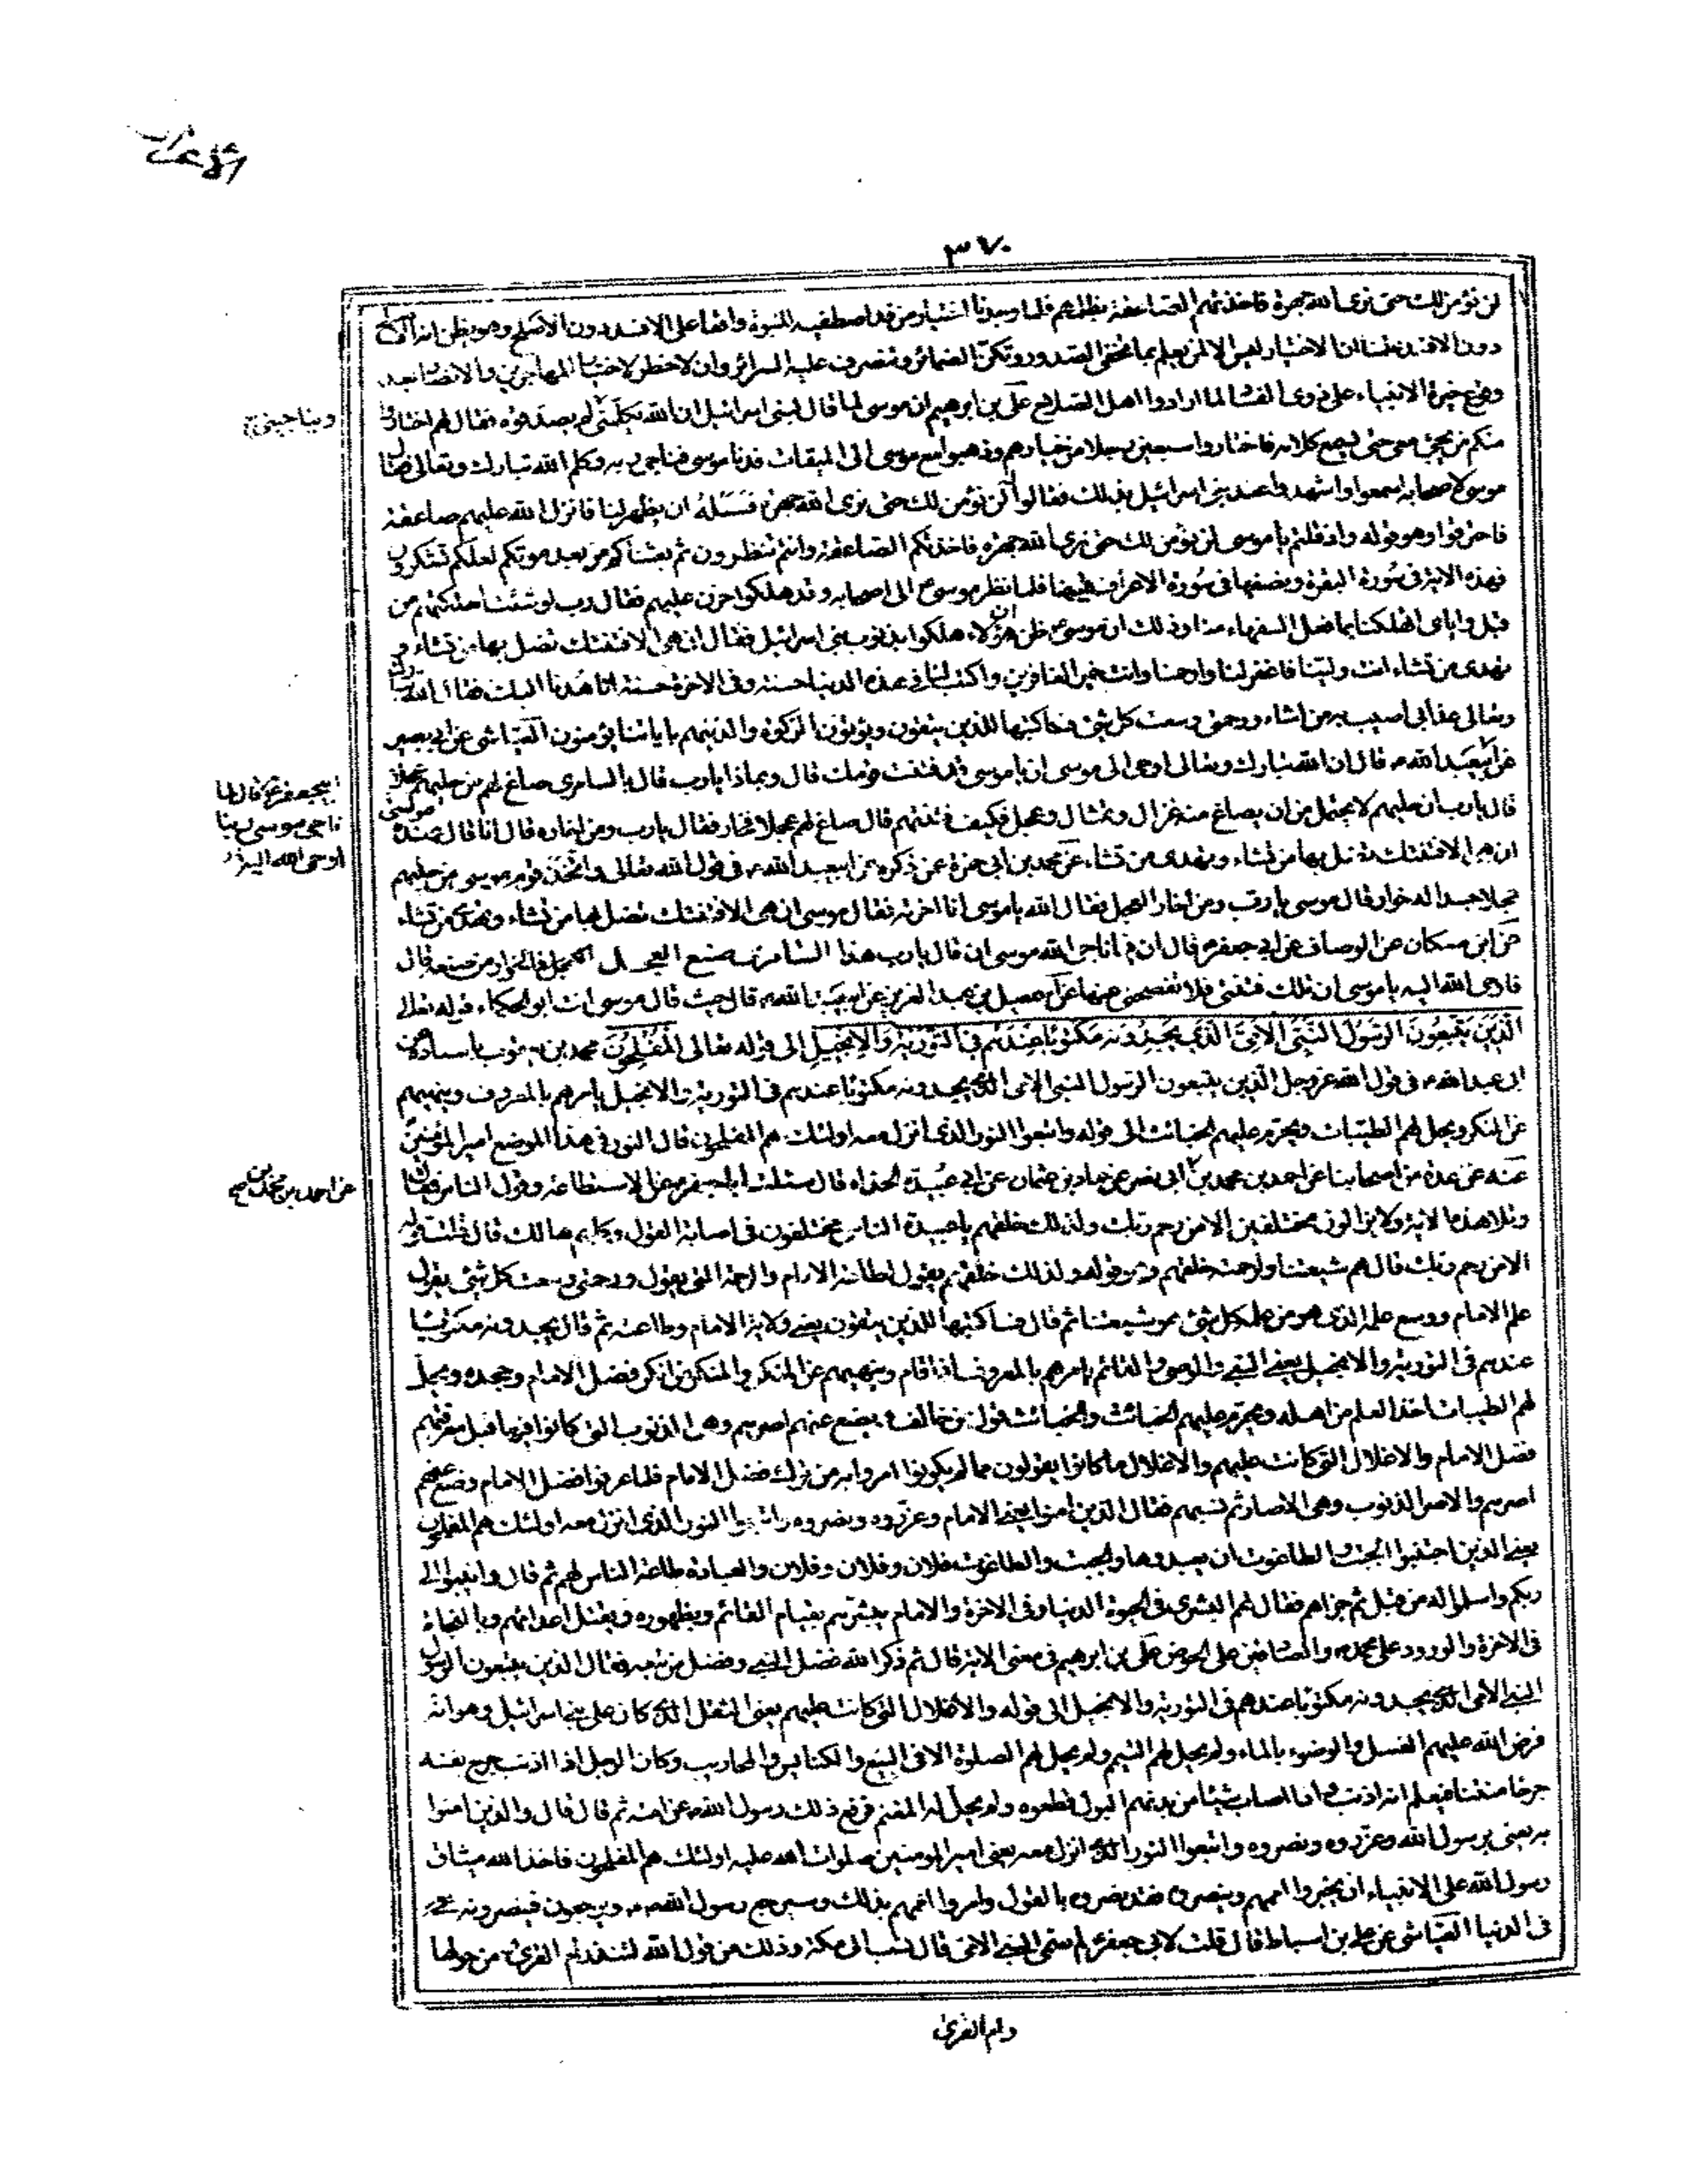 ٣٧٠
لن نؤمن لك حتى نرى الله جهرة فاخذتهم الصاعقة بظلمهم فلما وجدنا اختيار من قد اصطفيه للنبوة واقعا على الافسد دون الاصلح وهو يظن انه الاصلح
دون الافسد علمنا ان الاختيار ليس الا لمن يعلم بما تخفى الصدور وتكن الضمائر وتنصرف عليه السرائر وان لا خطر لاختيار المهاجرين والانصار بعد
وقوع خيرة الانبياء على ذوى الفساد لما ارادوا اهل الصلاح على بن ابرهيم ان موسى لما قال لبنى اسرائيل ان الله يكلمنى لم يصدقوه فقال لهم اختاروا
منكم من يجئ معى حتى يسمع كلامه فاختاروا سبعين رجلا من خيارهم وذهبوا مع موسى الى الميقات فدنا موسى فناجى ربه وكلم الله تبارك وتعالى فقال
موسى لاصحابه اسمعوا واشهدوا عند بنى اسرائيل بذلك فقالوا لن نؤمن لك حتى نرى الله جهرة فسئله ان يظهر لنا فانزل الله عليهم صاعقة
فاحترقوا وهو قوله واذ قلتم يا موسى لن نؤمن لك حتى نرى الله جهرة فاخذتكم الصاعقة وانتم تنظرون ثم بعثناكم من بعد موتكم لعلكم تشكرون
فهذه الاية فى سورة البقرة ونصفها فى سورة الاعراف ههنا فلما نظر موسى الى اصحابه وقد هلكوا حزن عليهم فقال رب لو شئت اهلكتهم من
قبل واياى اتهلكنا بما فعل السفهاء منا وذلك ان موسى ظن ان هؤلاء هلكوا بذنوب بنى اسرائيل فقال ان هى الا فتنتك تضل بها من تشاء و
تهدى من تشاء انت ولينا فاغفر لنا وارحمنا وانت خير الغافرين واكتب لنا فى هذه الدنيا حسنة وفى الاخرة حسنة انا هدنا اليك فقال الله تبارك
وتعالى عذابى اصيب به من اشاء ورحمتى وسعت كل شئ فساكتبها للذين يتقون ويؤتون الزكوة والذينهم باياتنا يؤمنون العياشى عن ابى بصير
عن ابى عبد الله قال ان الله تبارك وتعالى اوحى الى موسى ان يا موسى قد فتنت قومك قال وبماذا يا رب قال بالسامرى صاغ لهم من حليهم عجلا
قال يا رب ان حليهم لا يحتمل من ان يصاغ منه غزال وتمثال وعجل فكيف فتنتهم قال صاغ لهم عجلا فخار فقال يا رب ومن اخاره قال انا قال عنده موسى
ان هى الا فتنتك تضل بها من تشاء وتهدى من تشاء عن محمد بن ابى حمزة عن ذكره عن ابى عبد الله فى قول الله تعالى واتخذ قوم موسى من حليهم
عجلا جسدا له خوار فقال موسى يا رب ومن اخار العجل فقال الله يا موسى انا اخرته فقال موسى ان هى الا فتنتك تضل بها من تشاء وتهدى من تشاء
عن ابن مسكان عن الوصاف عن ابى جعفر قال ان فيما ناجى الله موسى ان قال يا رب هذا السامرى صنع العجل العجل فالخوار من صنعه قال
فاوحى الله اليه يا موسى ان تلك فتنتى فلا تفصحنى عنها عن اسمعيل بن عبد العزيز عن ابى عبد الله قال حيث قال موسى انت ابو الحكماء قوله تعالى
الذين يتبعون الرسول النبى الامى الذى يجدونه مكتوبا عندهم فى التورية والانجيل الى قوله تعالى المفلحون محمد بن يعقوب باسناده عن
ابى عبد الله فى قول الله عزوجل الذين يتبعون الرسول النبى الامى الذى يجدونه مكتوبا عندهم فى التورية والانجيل يامرهم بالمعروف وينهيهم
عن المنكر ويحل لهم الطيبات ويحرم عليهم الخبائث الى قوله واتبعوا النور الذى انزل معه اولئك هم المفلحون قال النور فى هذا الموضع امير المؤمنين
عنه عن عدة من اصحابنا عن احمد بن محمد بن ابى نصر عن حماد بن عثمان عن ابى عبيدة الحذاء قال سئلت ابا جعفر عن الاستطاعة وقول الناس فقال
وتلا هذه الاية ولا يزالون مختلفين الا من رحم ربك ولذلك خلقهم يا عبيدة الناس مختلفون فى اصابة القول وكلهم هالك قال قلت قوله
الا من رحم ربك قال هم شيعتنا ولرحمته خلقهم وهو قوله ولذلك خلقهم يقول لطاعة الامام والرحمة التى يقول ورحمتى وسعت كل شئ يقول
علم الامام ووسع علمه الذى هو من علمه كل شئ هو شيعتنا ثم قال فساكتبها للذين يتقون يعنى ولاية الامام وطاعته ثم قال يجدونه مكتوبا
عندهم فى التورية والانجيل يعنى النبى والوصى والقائم يامرهم بالمعروف اذا قام وينهيهم عن المنكر والمنكر من انكر فضل الامام وجحده ويحل
لهم الطيبات اخذ العلم من اهله ويحرم عليهم الخبائث والخبائث قول من خالف ويضع عنهم اصرهم وهى الذنوب التى كانوا فيها قبل معرفتهم
فضل الامام والاغلال التى كانت عليهم والاغلال ما كانوا يقولون مما لم يكونوا امروا به من ترك فضل الامام فلما عرفوا فضل الامام وضع عنهم
اصرهم والاصر الذنوب وهى الاصار ثم نسبهم فقال الذين امنوا يعنى الامام وعزروه ونصروه واتبعوا النور الذى انزل معه اولئك هم المفلحون
يعنى الذين اجتنبوا الجبت والطاغوت ان يعبدوها والجبت والطاغوت فلان وفلان وفلان والعبادة طاعة الناس لهم ثم قال وانيبوا الى
ربكم واسلموا له من قبل ثم جزاهم فقال لهم البشرى فى الحيوة الدنيا وفى الاخرة والامام يبشرهم بقيام القائم وبظهوره وبقتل اعدائهم وبالنجاة
فى الاخرة والورود على محمد والصادقين على الحوض على بن ابرهيم فى معنى الاية قال ثم ذكر الله فضل النبى وفضل من تبعه فقال الذين يتبعون الرسول
النبى الامى الذى يجدونه مكتوبا عندهم فى التورية والانجيل الى قوله والاغلال التى كانت عليهم يعنى الثقل الذى كان على بنى اسرائيل وهو انه
فرض الله عليهم الغسل والوضوء بالماء ولم يحل لهم التيمم ولم يحل لهم الصلوة الا فى البيع والكنايس والمحاريب وكان الرجل اذا اذنب جرح نفسه
جرحا منتنا فيعلم انه اذنب واذا اصاب شيئا من بدنهم البول قطعوه ولم يحل لهم المغنم فرفع ذلك رسول الله عن امته ثم قال قال والذين امنوا
به يعنى برسول الله وعزروه ونصروه واتبعوا النور الذى انزل معه يعنى امير المؤمنين صلوات الله عليه اولئك هم المفلحون فاخذ الله ميثاق
رسول الله على الانبياء ان يخبروا اممهم وينصروه فقد نصروه بالقول وامروا اممهم بذلك وسيرجع رسول الله ويرجعون فينصرونه
فى الدنيا العياشى عن على بن اسباط قال قلت لابى جعفر لم سمى النبى الامى قال نسب الى مكة وذلك من قول الله لتنذر ام القرى ومن حولها
وام القرى
ويناجينى
ابى جعفر قال لما
ناجى موسى ربنا
اوحى الله اليه
عن احمد بن محمد بن